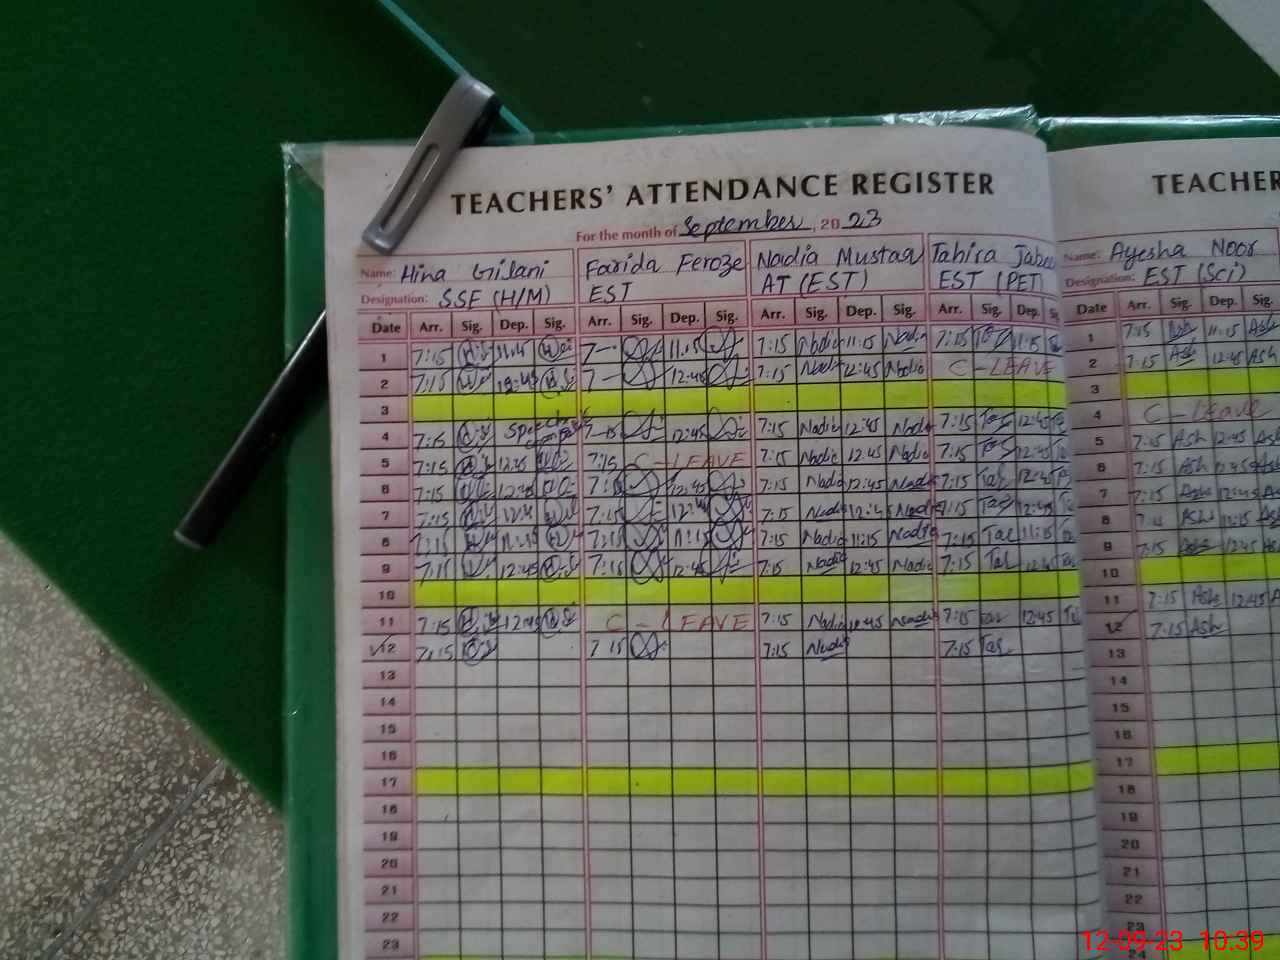 TEACHERS' ATTENDANCE REGISTER
For the month of September, 2023
Name: Hina Gilani Farida Feroze Nadia Mustaq Tahira
Designation: SSE (H/M) EST AT (EST) EST (PET)
Date Arr. Sig. Dep. Sig. Arr. Sig. Dep. Sig. Arr. Sig. Dep. Sig. Arr. Sig. Dep.
1 7:15 11:15 7:15 Nadia 11:15 Nadia 7:15 11:15
2 7:15 12:45 12:45 7:15 Nadia 12:45 Nadia C-LEAVE
3
4 7:15 12:45 7:15 Nadia 12:45 Nadia 7:15 Tas 12:45
5 7:15 12:45 7:15 C-LEAVE 7:15 Nadia 12:45 Nadia 7:15 Tas 12:45
6 7:15 12:45 12:45 7:15 Nadia 12:45 Nadia 7:15 Tas 12:45
7 7:15 7:15 7:15 Nadia 12:45 Nadia 7:15 Tas 12:45
8 7:15 7:15 11:15 7:15 Nadia 11:15 Nadia 7:15 Tas 11:15
9 7:15 12:45 7:15 12:45 7:15 Nadia 12:45 Nadia 7:15 Tas 12:45
10
11 7:15 12:45 C-LEAVE 7:15 Nadia 12:45 Nadia 7:15 Tas 12:45
12 7:15 7 15 7:15 Nadia 7:15 Tas
13
14
15
16
17
18
19
20
21
22
23
TEACHER
Name: Ayesha Noor
Designation: EST (Sci)
Date Arr. Sig. Dep. Sig.
1 7:15 Ash 11:15 Ash
2 7:15 Ash 12:45 Ash
3
4 C-Leave
5 7:15 Ash 12:45 Ash
6 7:15 Ash 12:45 Ash
7 7:15 Ash 12:45 Ash
8 Ash 11:15 Ash
9 7:15 Ash 12:45
10
11 7:15 Ash 12:45
12 7:15 Ash
13
14
15
16
17
18
19
20
21
22
23
24
12-09-23 10:39